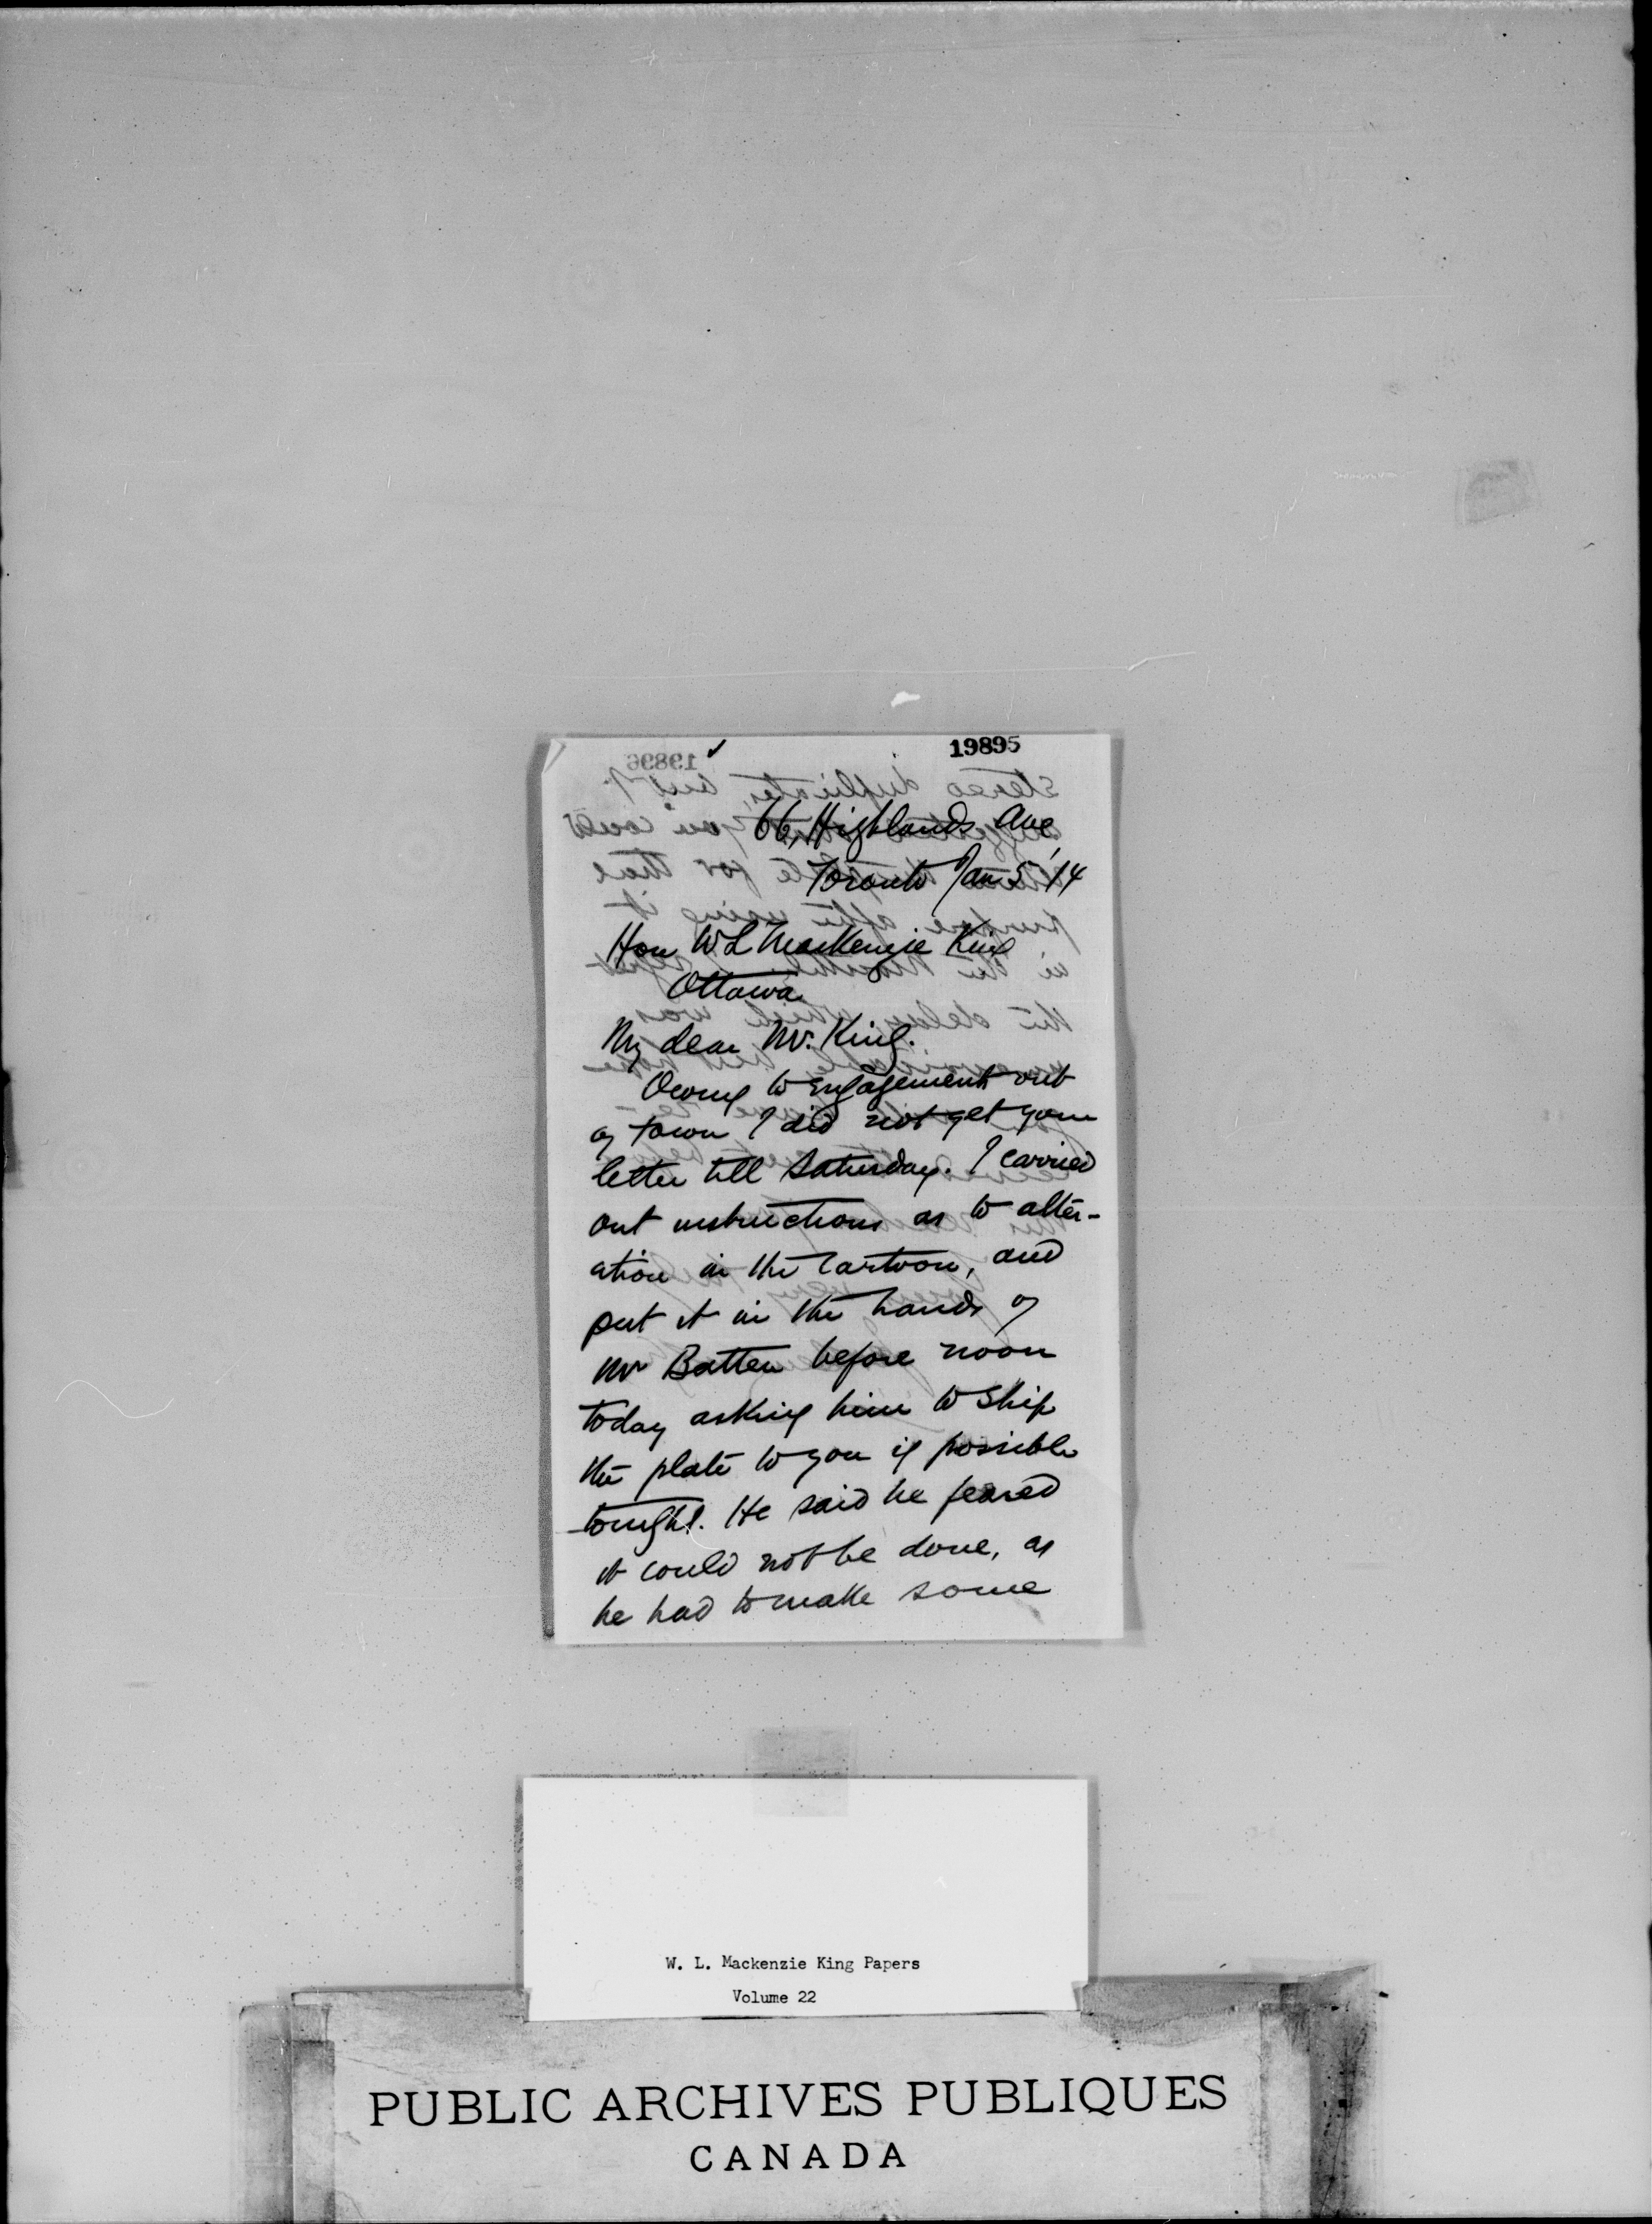 19895
19896
66, Highlands Ave,
Toronto Jan 5 '14
Hon W L MacKenzie King
Ottawa
My dear Mr. King.
Owing to engagement out
of town I did not get your
letter till Saturday. I carried
out instructions as to alter-
ation in the cartoon, and
put it in the hands of
Mr Batten before noon
today asking him to ship
the plate to you if possible
tonight. He said he feared
it could not be done, as
he had to make some
W. L. Mackenzie King Papers
Volume 22
PUBLIC ARCHIVES PUBLIQUES
CANADA